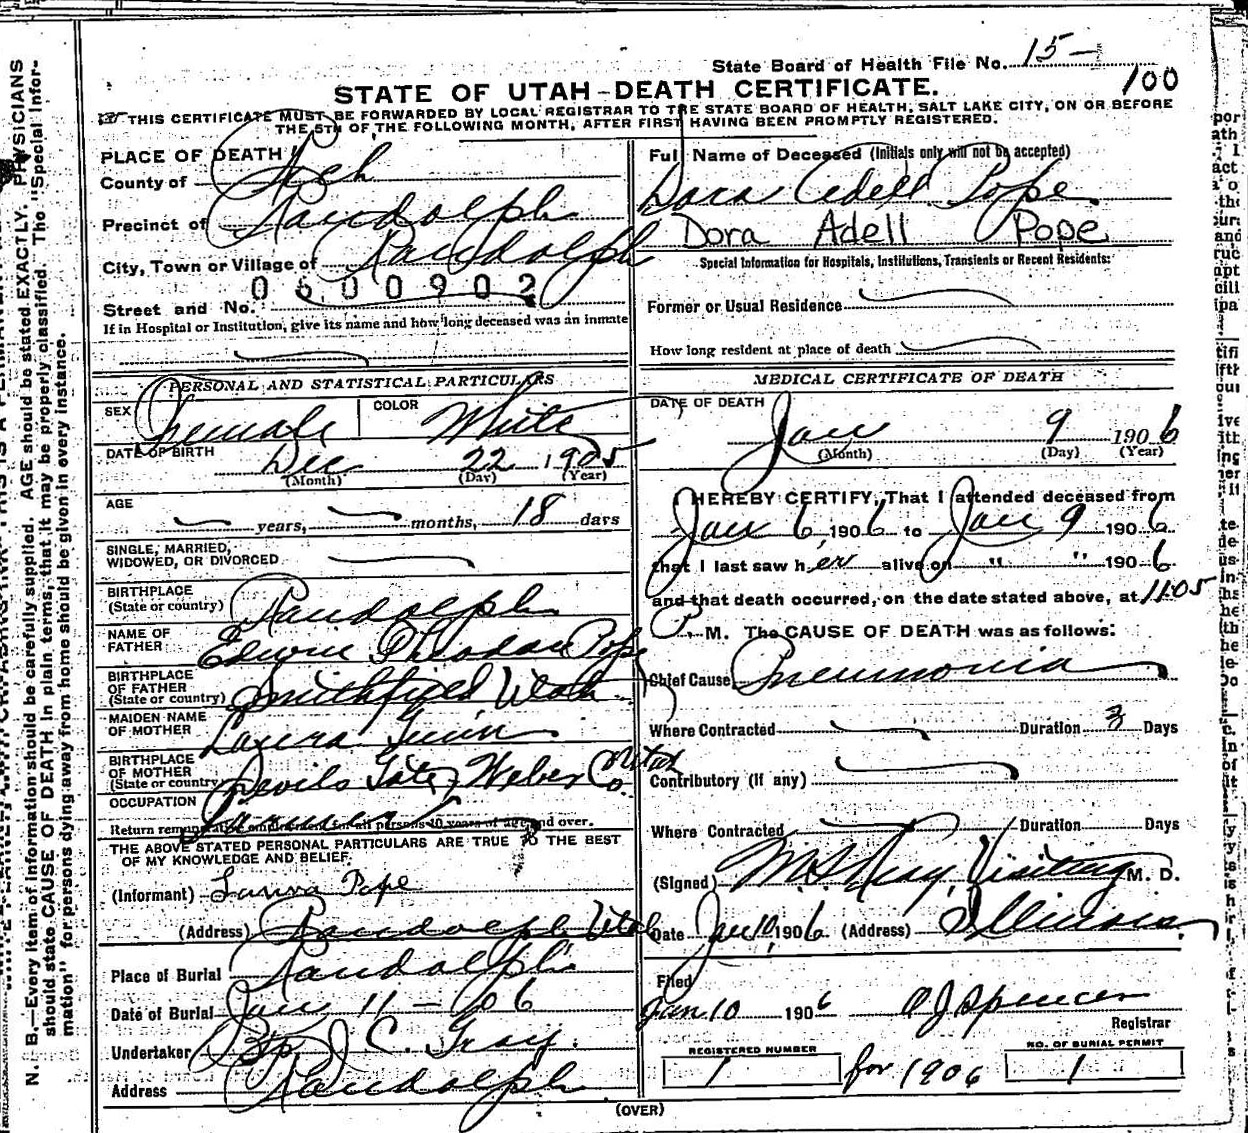 State Board of Health File No. 15-
100
STATE OF UTAH-DEATH CERTIFICATE.
THIS CERTIFICATE MUST BE FORWARDED BY LOCAL REGISTRAR TO THE STATE BOARD OF HEALTH, SALT LAKE CITY, ON OR BEFORE
THE 5TH OF THE FOLLOWING MONTH, AFTER FIRST HAVING BEEN PROMPTLY REGISTERED.
PLACE OF DEATH
County of Rich
Precinct of Randolph
City, Town or Village of Randolph
0600902
Street and No.
If in Hospital or Institution, give its name and how long deceased was an inmate
Full Name of Deceased (Initials only will not be accepted)
Dora Adell Pope
Dora Adell Pope
Special Information for Hospitals, Institutions, Transients or Recent Residents:
Former or Usual Residence
How long resident at place of death
PERSONAL AND STATISTICAL PARTICULARS
SEX Female COLOR White
DATE OF BIRTH Dec 22 1905
(Month) (Day) (Year)
AGE
years, months, 18 days
SINGLE, MARRIED,
WIDOWED, OR DIVORCED
BIRTHPLACE
(State or country) Randolph
NAME OF
FATHER Edwin Pope
BIRTHPLACE
OF FATHER
(State or country) Smithfield Utah
MAIDEN NAME
OF MOTHER Laura Guinn
BIRTHPLACE
OF MOTHER
(State or country) Devils Gate, Weber Co. Utah
OCCUPATION
Return remunerative employment for all persons 10 years of age and over.
THE ABOVE STATED PERSONAL PARTICULARS ARE TRUE TO THE BEST
OF MY KNOWLEDGE AND BELIEF.
(Informant) Laura Pope
(Address) Randolph Utah
Place of Burial Randolph
Date of Burial Jan 11-06
Undertaker Bp J C. Gray.
Address Randolph
MEDICAL CERTIFICATE OF DEATH
DATE OF DEATH
Jan 9 1906
(Month) (Day) (Year)
I HEREBY CERTIFY, That I attended deceased from
Jan 6, 1906 to Jan 9 1906
that I last saw her alive on " " 1906
and that death occurred, on the date stated above, at 11.05
P. M. The CAUSE OF DEATH was as follows:
Chief Cause Pneumonia
Where Contracted Duration 3 Days
Contributory (if any)
Where Contracted Duration Days
(Signed) Visiting M. D.
Date Jan 10, 1906 (Address) Illinois.
Filed
Jan 10 1906 O J Spencer
Registrar
REGISTERED NUMBER
1 for 1906
NO. OF BURIAL PERMIT
1
(OVER)
N. B.—Every item of information should be carefully supplied. AGE should be stated EXACTLY. PHYSICIANS
should state CAUSE OF DEATH in plain terms, that it may be properly classified. The "Special Infor-
mation" for persons dying away from home should be given in every instance.